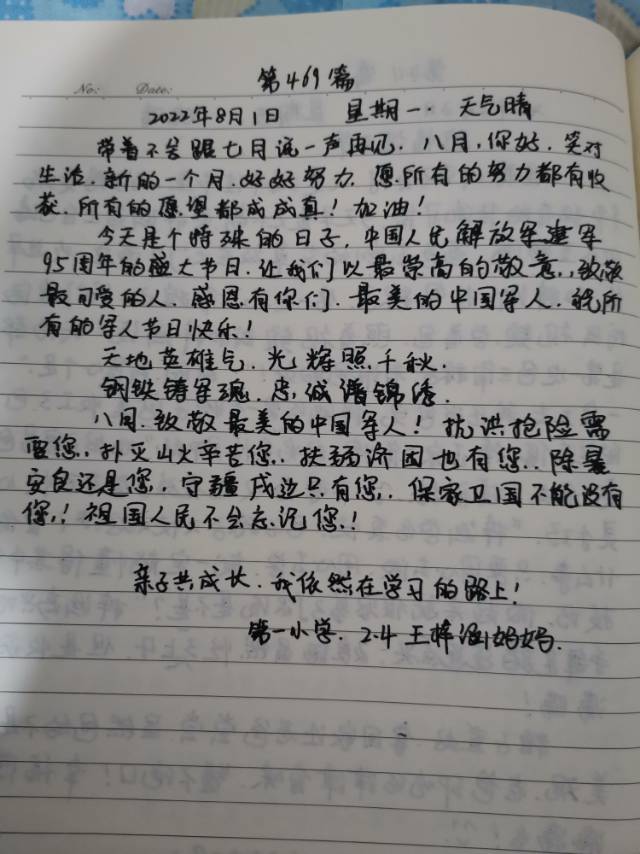 第469篇
No: Date:
2022年8月1日 星期一. 天气晴
带着不舍跟七月说一声再见.八月,你好.笑对
生活.新的一个月.好好努力.愿所有的努力都有收
获.所有的愿望都成成真!加油!
今天是个特殊的日子.中国人民解放军建军
95周年的盛大节日.让我们以最崇高的敬意,致敬
最可爱的人.感恩有你们.最美的中国军人.祝所
有的军人节日快乐!
天地英雄气.光辉照千秋.
钢铁铸军魂.忠诚谱锦绣.
八月.致敬最美的中国军人!抗洪抢险需
要您,扑灭山火辛苦您.扶弱济困也有您.除暴
安良还是您,守疆戍边只有您.保家卫国不能没有
您!祖国人民不会忘记您!
亲子共成长.我依然在学习的路上!
第一小学.2.4王梓涵妈妈.